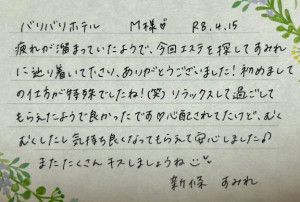 バリバリホテル M様♡ R8.4.15
疲れが溜まっていたようで、今回エステを探してすみれ
に辿り着いて下さり、ありがとうございました!初めまして
の仕方が特殊でしたね!(笑)リラックスして過ごして
もらえたようで良かったです♡心配されてたけど、むく
むくしたし気持ち良くなってもらえて安心しました♪
またたくさんキスしましょうね
新保 すみれ